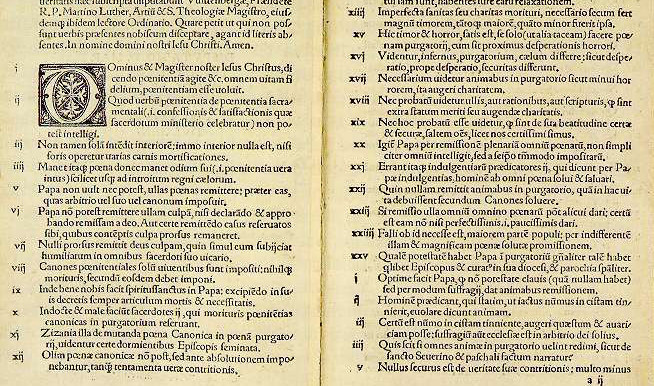 R. P. Martino Luther, Artiū & S. Theologiæ Magistro, eius-
dem q; ibidem lectore Ordinario. Quare petit ut qui non pos-
sunt uerbis præsentes nobiscum disceptare, agant id literis ab-
sentes. In nomine domini nostri Iesu Christi. Amen.
i DOminus & Magister noster Iesus Christus, di-
cendo pœnitentiā agite &c. omnem uitam fi
delium, pœnitentiam esse uoluit.
ij Quod uerbū pœnitentia de pœnitentia sacra-
mentali (.i. confessiōis & satisfactiōis quæ
sacerdotum ministerio celebratur) non po-
test intelligi.
iij Non tamen solā intēdit interiorē; immo interior nulla est, nisi
foris operetur uarias carnis mortificationes.
iiij Manet itaq; pœna donec manet odium sui (.i. pœnitentia uera
intus) scilicet usq; ad introitum regni cælorum.
v Papa non uult nec potest, ullas pœnas remittere; præter eas,
quas arbitrio uel suo uel canonum imposuit.
vj Papa nō potest remittere ullam culpā, nisi declarādo & appro-
bando remissam a deo. Aut certe remittēdo casus reseruatos
sibi, quibus cōtēptis culpa prorsus remaneret.
vij Nulli prorsus remittit deus culpam, quin simul eum subijciat
humiliatum in omnibus sacerdoti suo uicario.
viij Canones pœnitentiales solū uiuentibus sunt impositi; nihilq;
morituris, secundū eosdem debet imponi.
ix Inde bene nobis facit spiritussanctus in Papa; excipiēdo in su-
is decretis semper articulum mortis & necessitatis.
x Indocte & male faciūt sacerdotes ij, qui morituris pœnitētias
canonicas in purgatorium reseruant.
xj Zizania illa de mutanda pœna Canonica in pœnā purgato-
rij, uidentur certe dormientibus Episcopis seminata.
xij Olim pœnæ canonicæ nō post, sed ante absolutionem impo-
nebantur, tanq; tentamenta ueræ contritionis.
xiiij Imperfecta sanitas seu charitas morituri, necessario secum fert
magnū timorem, tātoq; maiorē, quāto minor fuerit ipsa.
xv Hic timor & horror, satis est, se solo (ut alia taceam) facere pœ-
nam purgatorij, cum sit proximus desperationis horrori.
xvj Videntur, infernus, purgatorium, cælum differre; sicut despe-
ratio, prope desperatio, securitas differunt.
xvij Necessarium uidetur animabus in purgatorio sicut minui hor-
rorem, ita augeri charitatem.
xviij Nec probatū uidetur ullis, aut rationibus, aut scripturis, q; sint
extra statum meriti seu augendæ charitatis.
xix Nec hoc probatū esse uidetur, q; sint de sua beatitudine certæ
& securæ, saltem oēs, licet nos certissimi simus.
xx Igit̄ Papa per remissionē plenariā omniū pœnarū, non simpli
citer omniū intelligit, sed a seipō tm̄modo impositarū.
xxj Errant itaq; indulgentiarū prædicatores ij, qui dicunt per Pa-
pæ indulgentias, hominē ab omni pœna solui & saluari.
xxij Quin nullam remittit animabus in purgatorio, quā in hac ui-
ta debuissent secundum Canones soluere.
xxiij Si remissio ulla omniū omnino pœnarū pōt alicui dari; certū
est eam nō nisi perfectissimis, .i. paucissimis dari.
xxiiij Falli ob id necesse est, maiorem partē populi; per indifferentē
illam & magnificam pœnæ solutæ promissionem.
xxv Qualē potestatē habet Papa ī purgatoriū gn̄aliter talē habet
quilibet Episcopus & curatus in sua diocesi, & parochia spāliter.
i Optime facit Papa, q; nō potestate clauis (quā nullam habet)
sed per modum suffragij, dat animabus remissionem.
ij Hominē prædicant, qui statim, ut iactus nūmus in cistam tin-
nierit, euolare dicunt animam.
iij Certū est nūmo in cistam tinniente, augeri quæstum & auari-
ciam posse; suffragiū aūt ecclesiæ est in arbitrio dei solius.
iiij Quis scit si omnes animæ in purgatorio uelint redimi, sicut de
sancto Seuerino & paschali factum narratur.
v Nullus securus est de ueritate suæ contritionis; multo minus
a ij